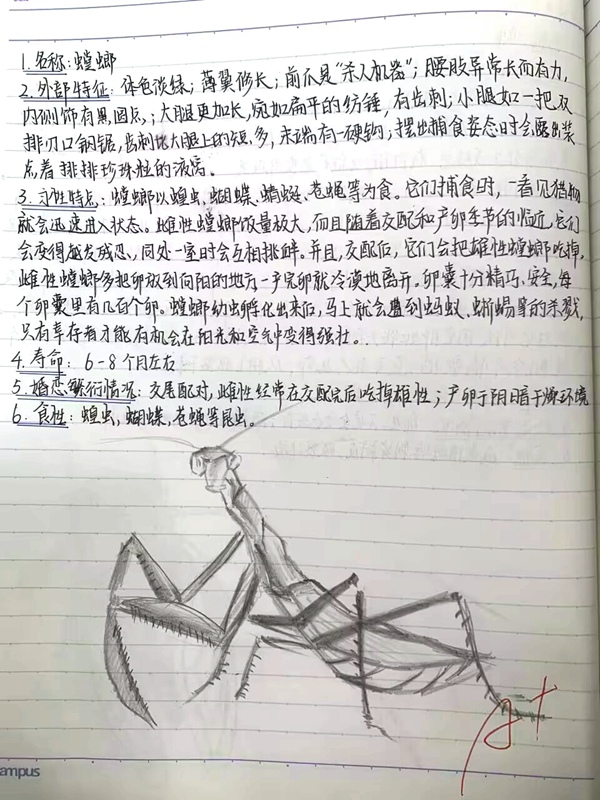 1. 名称: 螳螂
2. 外部特征: 体色淡绿; 薄翼修长; 前爪是“杀人机器”; 腰肢异常长而有力,
内侧饰有黑圆点,; 大腿更加长, 宛如扁平的纺锤, 有齿刺; 小腿如一把双
排刃口钢锯, 齿刺比大腿上的短、多, 末端有一硬钩; 摆出捕食姿态时会露出装
点着排排珍珠粒的
3. 习性特点: 螳螂以蝗虫、蝴蝶、蜻蜓、苍蝇等为食。它们捕食时, 一看见猎物
就会迅速进入状态。雌性螳螂饭量极大, 而且随着交配和产卵季节的临近, 它们
会变得越发残忍, 同处一室时会互相挑衅。并且, 交配后, 它们会把雄性螳螂吃掉,
雌性螳螂多把卵放到向阳的地方一产完卵就冷漠地离开。卵囊十分精巧、安全, 每
个卵囊里有几百个卵。螳螂幼虫孵化出来后, 马上就会遭到蚂蚁、蜥蜴等的杀戮,
只有幸存者才能有机会在阳光和空气中变得强壮。
4. 寿命: 6-8个月左右
5. 婚恋繁衍情况: 交尾配对, 雌性经常在交配完后吃掉雄性; 产卵于阴暗干燥环境
6. 食性: 蝗虫, 蝴蝶, 苍蝇等昆虫。
ampus